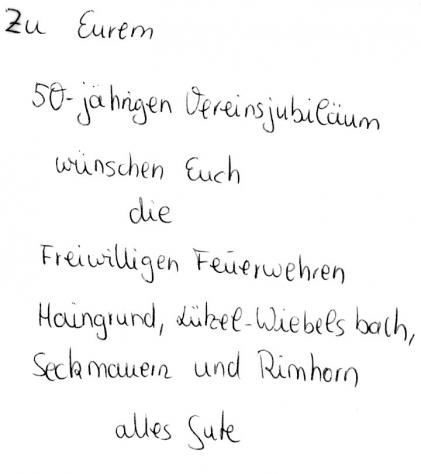 Zu Eurem
50-jährigen Vereinsjubiläum
wünschen Euch
die
Freiwilligen Feuerwehren
Haingrund, Lützel-Wiebelsbach,
Seckmauern und Rimhorn
alles Gute